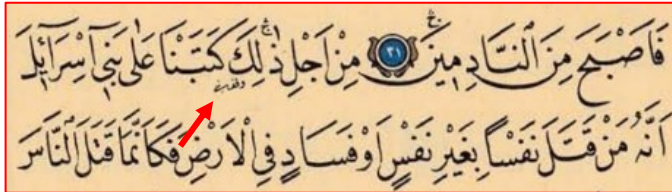 فَاَصْبَحَ مِنَ النَّادِم۪ينَۚۛ ﴿٣١﴾ مِنْ اَجْلِ ذٰلِكَۚۛ كَتَبْنَا عَلٰى بَن۪ٓي اِسْرَٓائ۪لَ
اَنَّهُ مَنْ قَتَلَ نَفْسًا بِغَيْرِ نَفْسٍ اَوْ فَسَادٍ فِي الْاَرْضِ فَكَاَنَّمَا قَتَلَ النَّاسَ